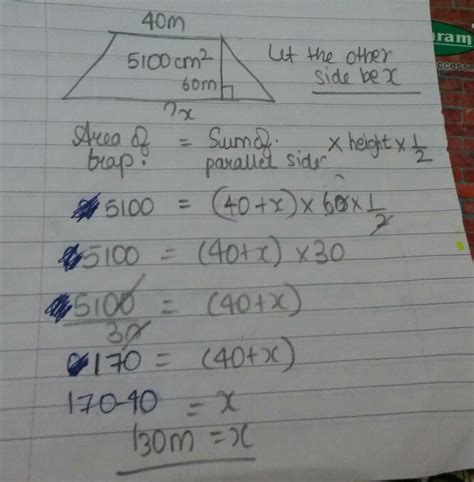 40m
ram
5100cm²
60m
Let the other
side be x
?x
Area of trap. = Sum of parallel sides × height × 1/2
5100 = (40+x) × 60 × 1/2
5100 = (40+x) × 30
5100/30 = (40+x)
170 = (40+x)
170-40 = x
130m = x